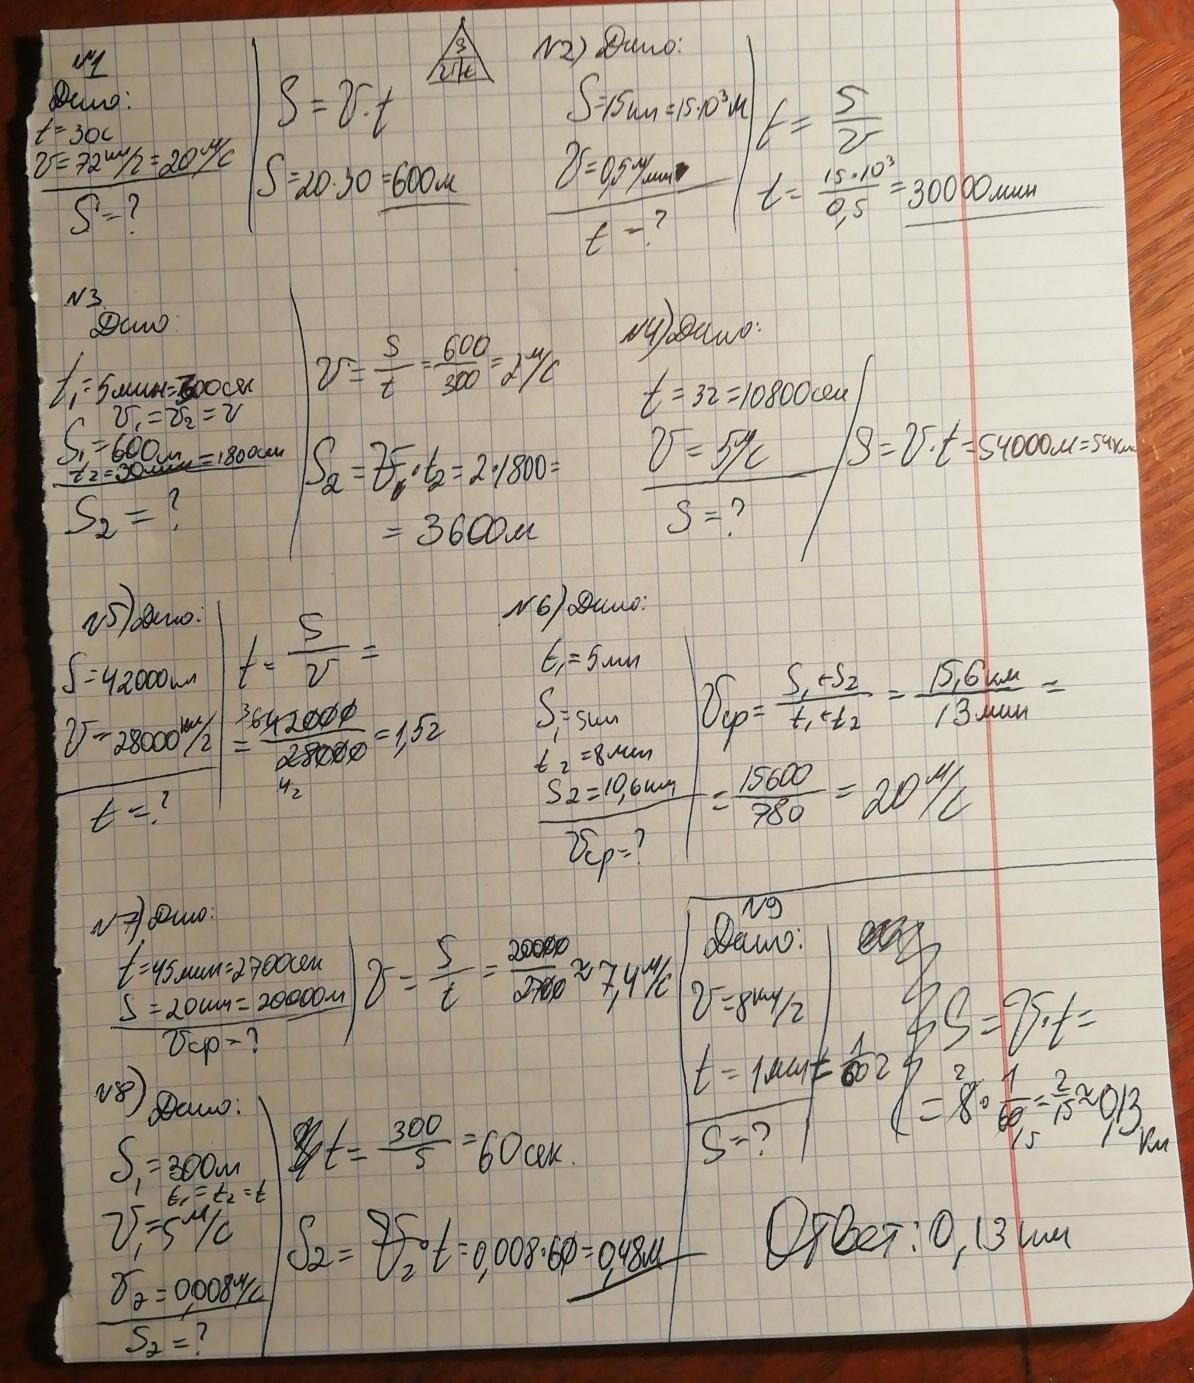 №1
Дано:
t=30с
V=72км/ч=20м/с
S=?
S=V·t
S=20·30=600м
S
V|t
№2) Дано:
S=15км=15·10³м
V=0,5м/мин
t=?
t=S/V
t=15·10³/0,5=30000мин
№3
Дано:
t₁=5мин=300сек
V₁=V₂=V
S₁=600м
t₂=30мин=1800сек
S₂=?
V=S/t=600/300=2м/с
S₂=V·t₂=2·1800=
=3600м
№4) Дано:
t=3ч=10800сек
V=5м/с
S=?
S=V·t=54000м=54км
№5) Дано:
S=42000км
V=28000км/ч
t=?
t=S/V=
=42000/28000=1,5ч
№6) Дано:
t₁=5мин
S₁=5км
t₂=8мин
S₂=10,6км
Vср=?
Vср=S₁+S₂/t₁+t₂=15,6км/13мин=
=15600/780=20м/с
№7) Дано:
t=45мин=2700сек
S=20км=20000м
Vср=?
V=S/t=20000/2700≈7,4м/с
№8)
Дано:
S₁=300м
t₁=t₂=t
V₁=5м/с
V₂=0,008м/с
S₂=?
t=300/5=60сек.
S₂=V₂·t=0,008·60=0,48м
№9
Дано:
V=8км/ч
t=1мин=1/60ч
S=?
S=V·t=
=8·1/60=2/15≈0,13
км
Ответ: 0,13км